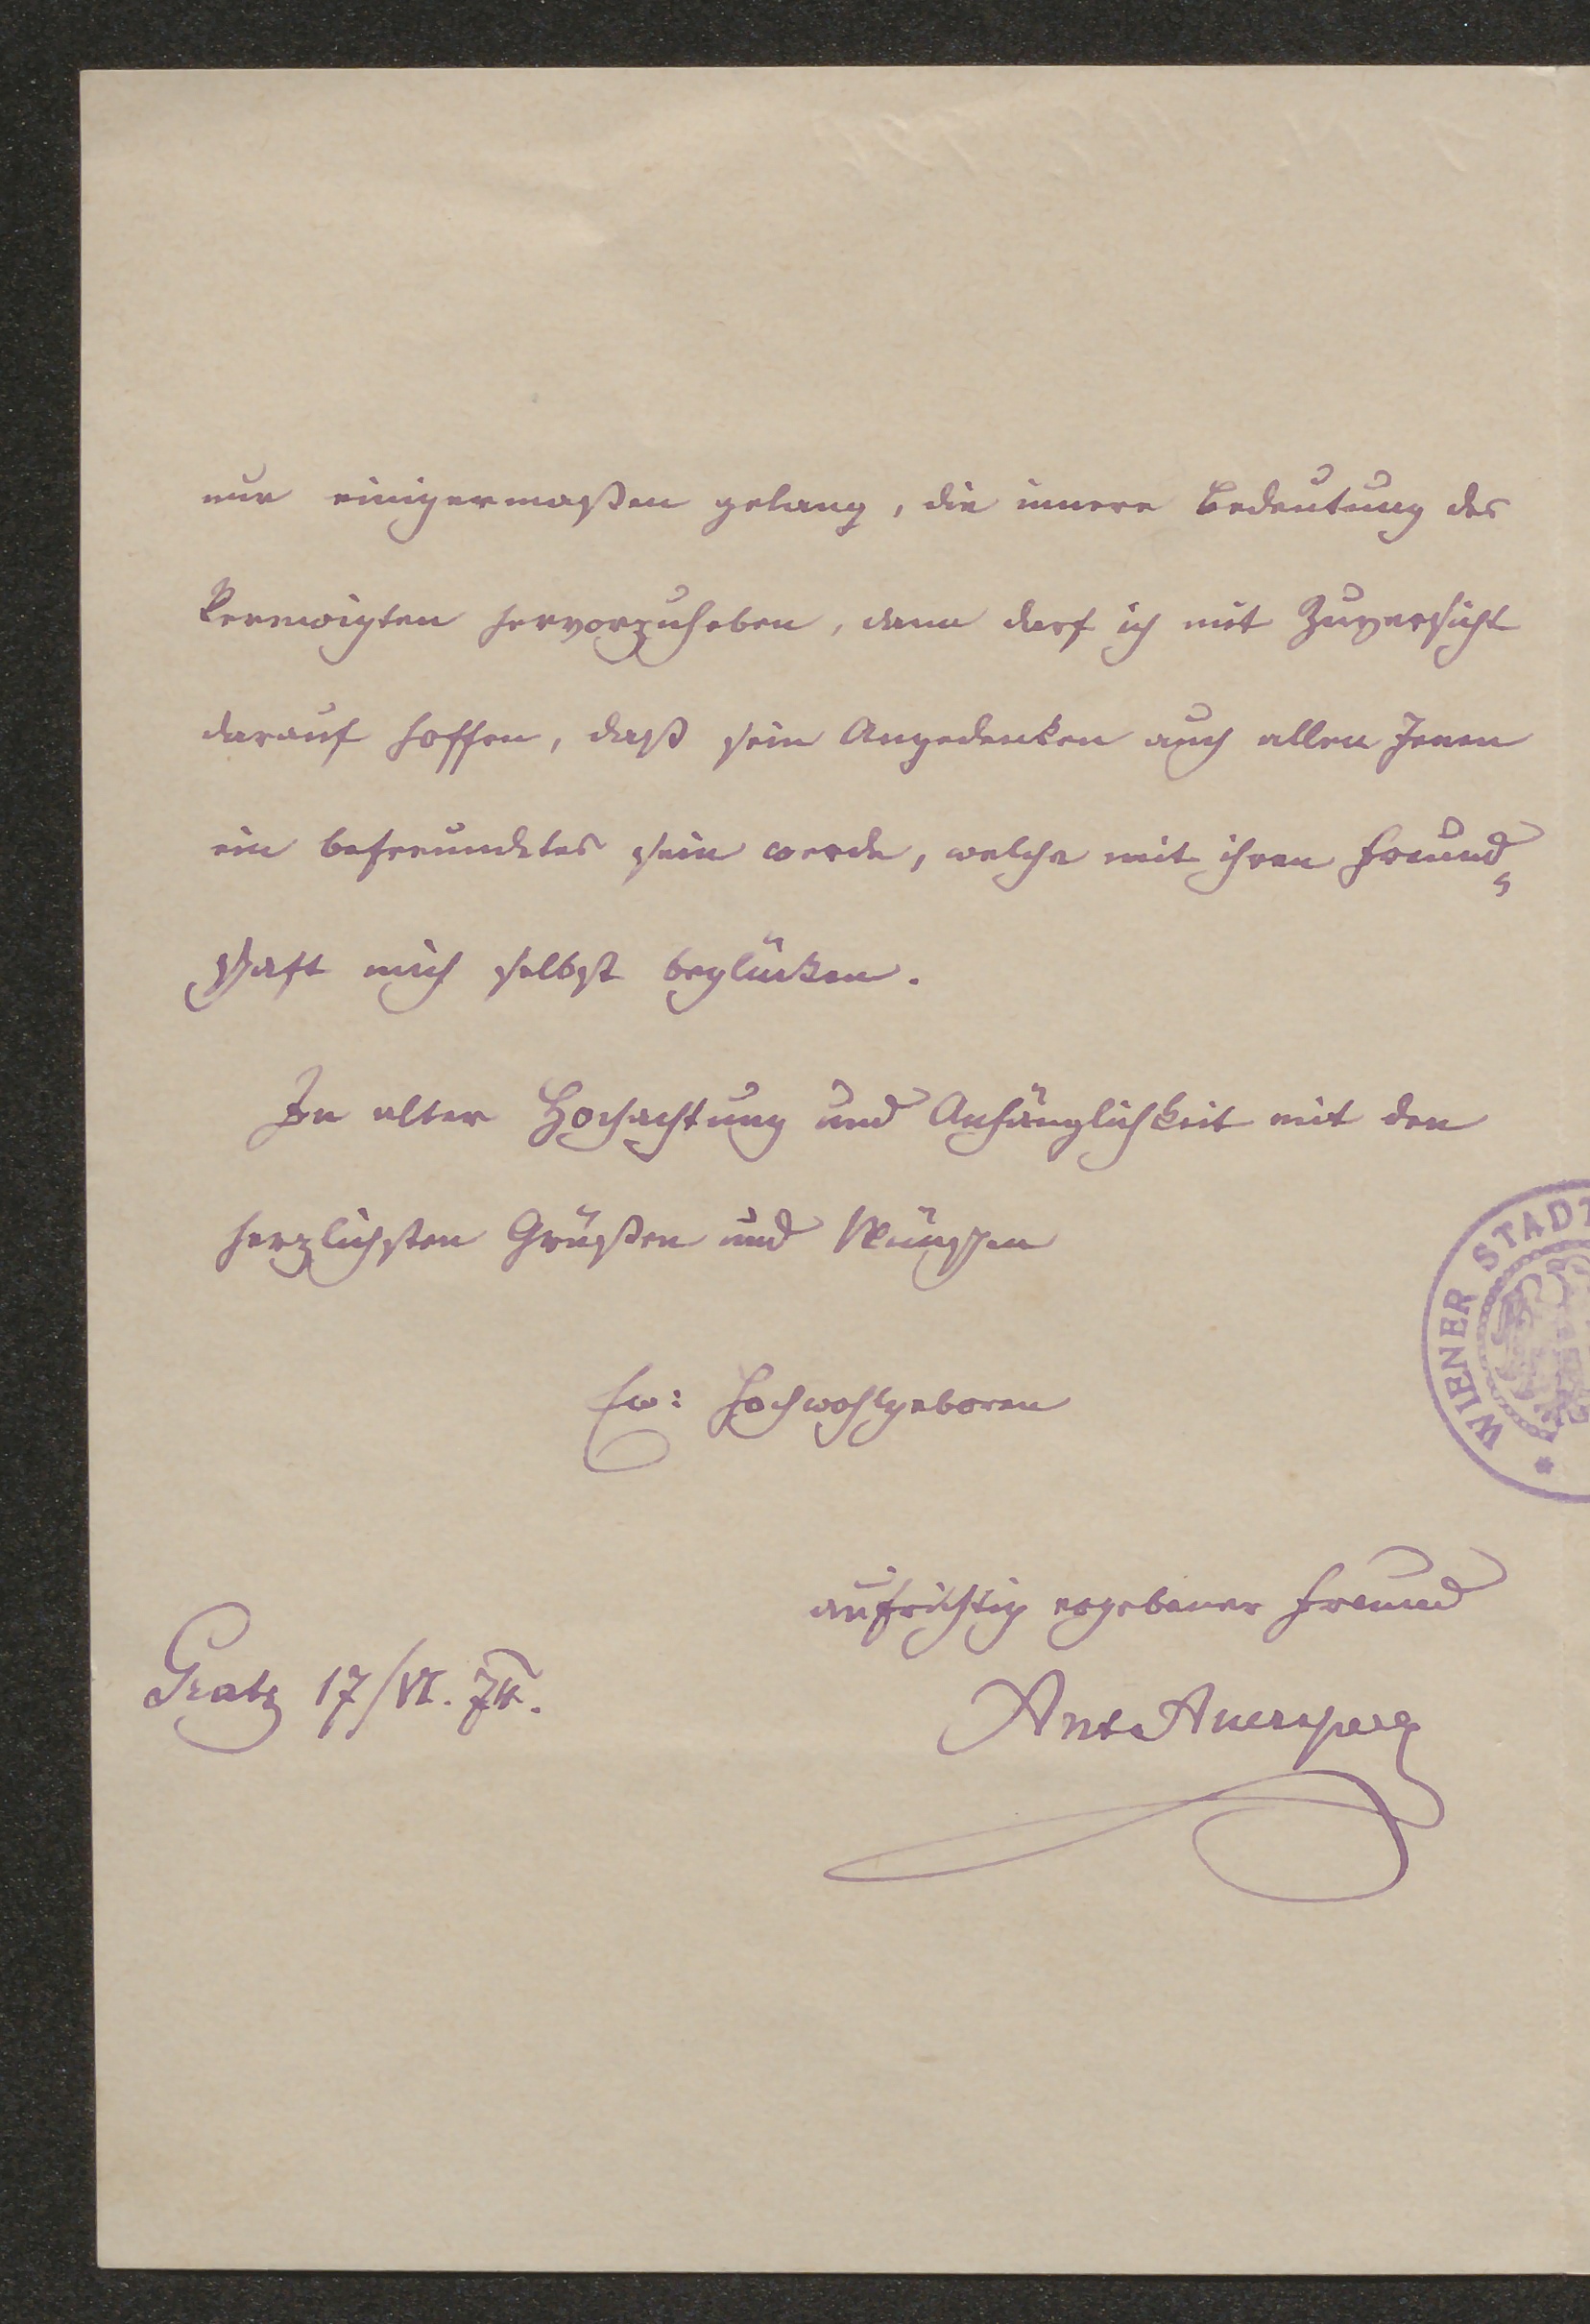 nur einigermaßen gelang, die innere Bedeutung des
Verewigten hervorzuheben, dann darf ich mit Zuversicht
darauf hoffen, daß sein Angedenken auch allen Jenen
ein befreundetes sein werde, welche mit ihrer Freund=
schaft mich selbst beglücken.
In alter Hochachtung und Anhänglichkeit mit den
herzlichsten Grüßen und Wünschen
Ew: Hochwohlgeboren
aufrichtig ergebener Freund
Gratz 17/VI.
Ant Auersperg
WIENER STADT